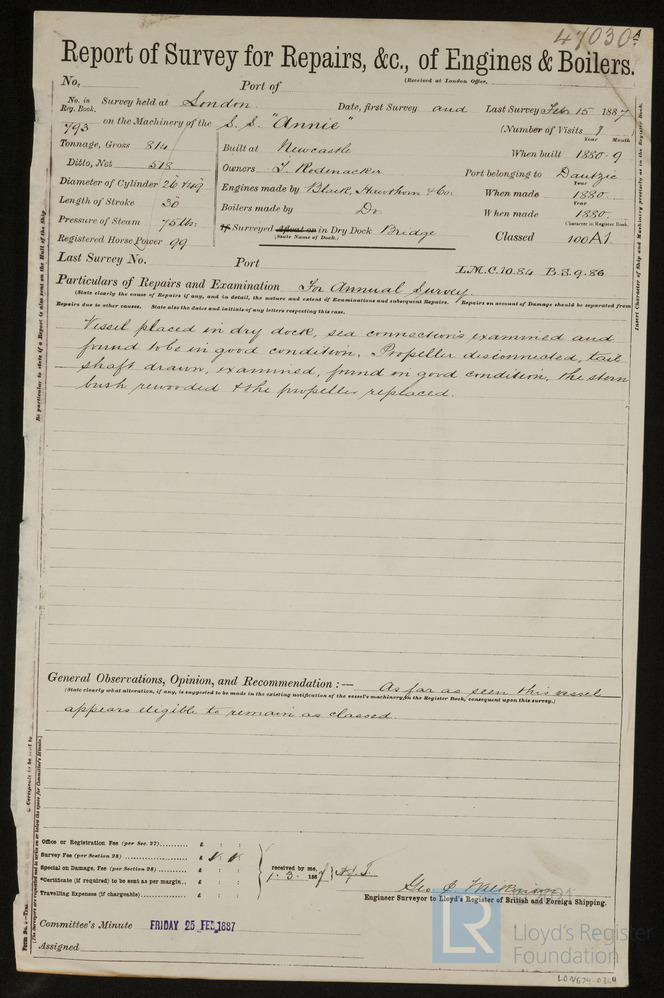 47030
Report of Survey for Repairs, &c., of Engines & Boilers.
(Received at London Office,
No. Port of
No. in Reg. Book. Survey held at London Date, first Survey and Last Survey Feb 15 1887
793 on the Machinery of the S.S. "Annie" (Number of Visits 1
Tonnage, Gross 814 Built at Newcastle When built 1880.9
Year Month
Ditto, Net 518 Owners T. Rodenacker Port belonging to Dantzic
Diameter of Cylinder 26 & 49 Engines made by Black, Hawthorn & Co. When made 1880.
Year
Length of Stroke 30 Boilers made by Do When made 1880.
Year
Pressure of Steam 75 lbs. If Surveyed afloat or in Dry Dock Bridge
(State Name of Dock.)
Registered Horse Power 99 Classed 100A1
Character in Register Book.
Last Survey No. Port L.M.C. 10.84 B.S. 9.86
Particulars of Repairs and Examination For Annual Survey.
(State clearly the cause of Repairs if any, and in detail, the nature and extent of Examinations and subsequent Repairs. Repairs on account of Damage should be separated from
Repairs due to other causes. State also the dates and initials of any letters respecting this case.
Vessel placed in dry dock, sea connections examined and
found to be in good condition. Propeller disconnected, tail
shaft drawn, examined, found in good condition, the stern
bush rewooded & the propeller replaced.
General Observations, Opinion, and Recommendation :— As far as seen this vessel
(State clearly what alteration, if any, is suggested to be made in the existing notification of the vessel's machinery in the Register Book, consequent upon this survey.)
appears eligible to remain as classed.
Office or Registration Fee (per Sec. 27) £ : :
Survey Fee (per Section 28) £
Special on Damage, Fee (per Section 28) £ : :
*Certificate (if required) to be sent as per margin £ : :
Travelling Expenses (if chargeable) £ : :
received by me,
1.3.1887
Engineer Surveyor to Lloyd's Register of British and Foreign Shipping.
Committee's Minute FRIDAY 25 FEB 1887
Assigned
Be particular to state if a Report is also sent on the Hull of the Ship.
Insert Character of Ship and Machinery precisely as in the Register Book.
LR
Lloyd's Register
Foundation